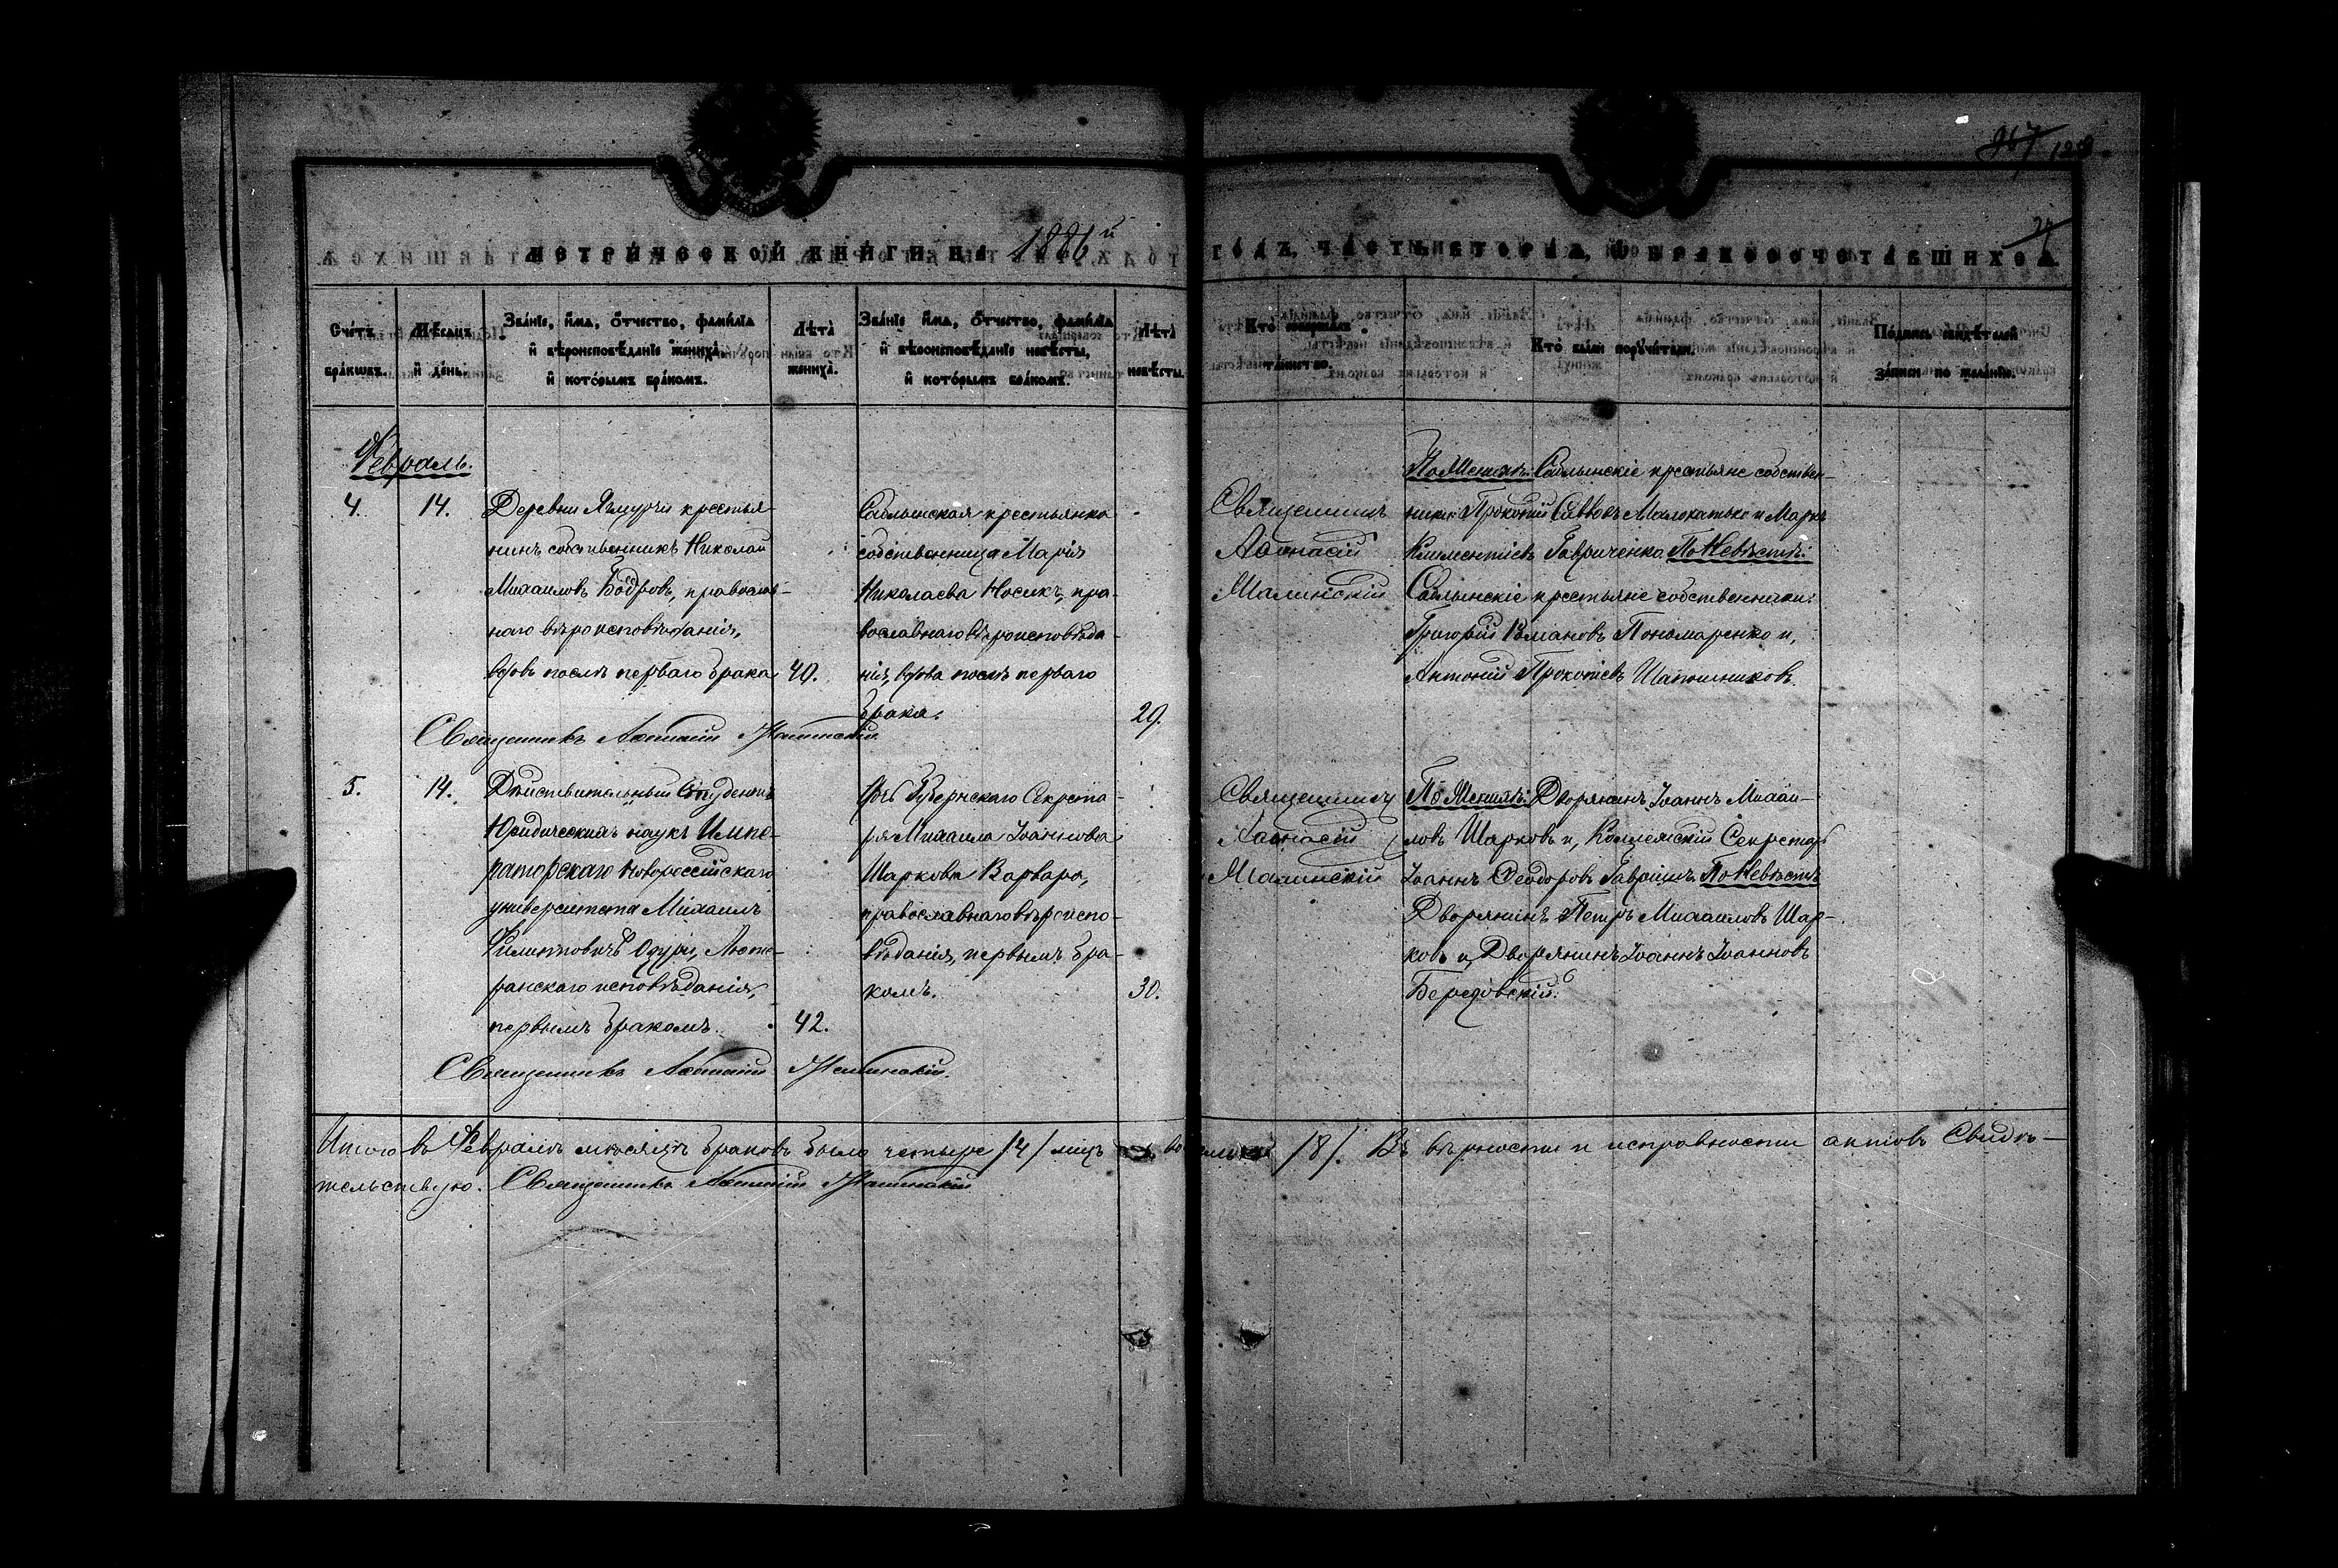 967 123
27
МЕТРИЧЕСКОЙ КНИГИ НА 1886й
ГОДЪ, ЧАСТЬ ВТОРАЯ, О БРАКОСОЧЕТАВШИХСЯ.
Счетъ браковъ.
Мѣсяцъ и день.
Званіе, имя, отчество, фамилія
и вѣроисповѣданіе жениха,
и которымъ бракомъ.
Лѣта
жениха.
Званіе имя, отчество, фамилія
и вѣроисповѣданіе невѣсты,
и которымъ бракомъ.
Лѣта
невѣсты.
Кто совершалъ
таинство.
Кто были поручители.
Подпись свидѣтелей
записи по желанію.
Февраль.
4. 14.
Деревни крестья-
нинъ собственникъ Николай
Михаиловъ Бодровъ, православ-
наго вѣроисповѣданія,
вдовъ послѣ перваго брака 40.
крестьянка
собственница Марія
Николаева Носикъ, пра-
вославнаго вѣроисповѣда-
нія, вдова послѣ перваго
брака. 29.
Священникъ
Аѳанасій
Малинскій
По Женихѣ: крестьяне собствен-
ники: Прокопій Саввовъ и Маркъ
Климентіевъ Гавриченко По Невѣстѣ:
крестьяне собственники:
Григорій Романовъ Пономаренко и,
Антоній Прокопіевъ Шапошниковъ.
Священникъ Аѳанасій Малинскій
5. 14.
Дѣйствительный Студентъ
Юридическихъ наукъ Импе-
раторскаго Новороссійскаго
университета Михаилъ
Филипповичъ Люте-
ранскаго исповѣданія,
первымъ бракомъ. 42.
Дочь Губернскаго Секрета-
ря Михаила Іоаннова
Шаркова Варвара,
православнаго вѣроиспо-
вѣданія, первымъ бра-
комъ. 30.
Священникъ
Аѳанасій
Малинскій
По Женихѣ: Дворянинъ Іоаннъ Михаи-
ловъ Шарковъ и, Коллежскій Секретарь
Іоаннъ Ѳеодоровъ По Невѣстѣ
Дворянинъ Петръ Михаиловъ Шар-
ковъ и, Дворянинъ Іоаннъ Іоанновъ
Березовскій.
Священникъ Аѳанасій Малинскій.
Итого въ Февралѣ мѣсяцѣ браковъ было четыре /4/ лицъ /8/. Въ вѣрности и исправности актовъ свидѣ-
тельствую. Священникъ Аѳанасій Малинскій